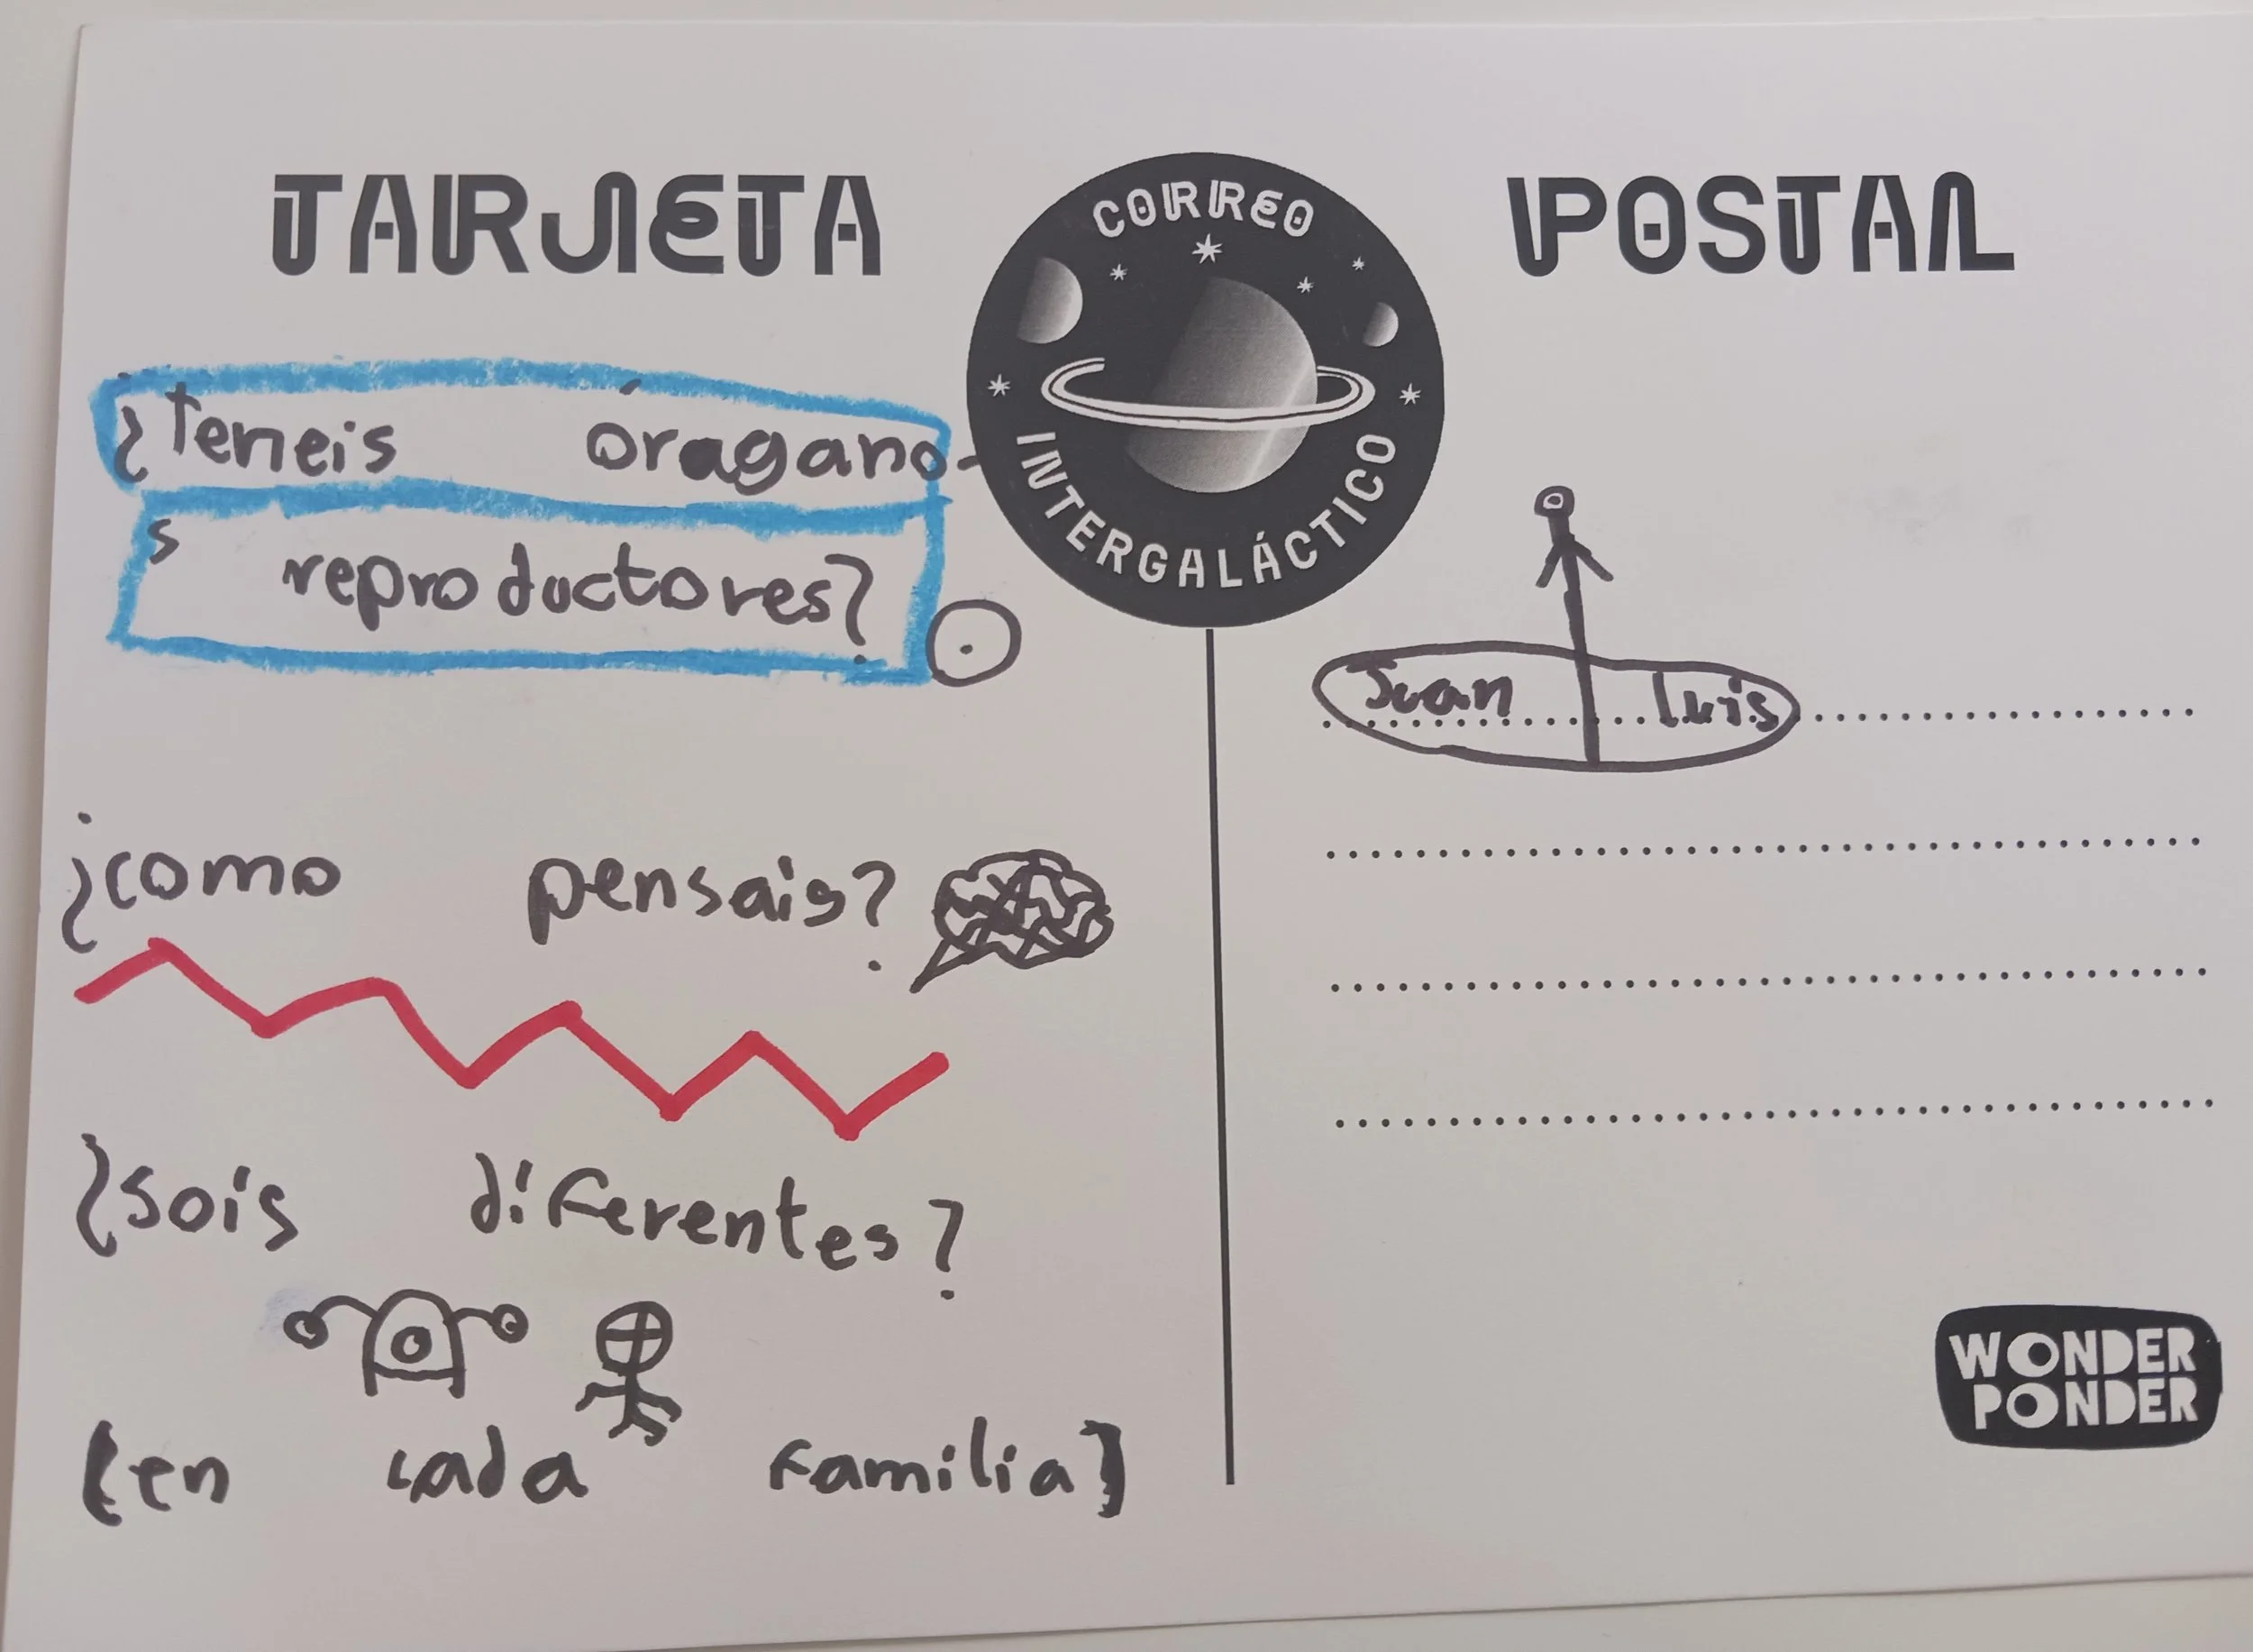 TARJETA
POSTAL
CORREO
INTERGALÁCTICO
¿Teneis óragano-
s reproductores?
Juan luis
¿como pensais?
¿sois diferentes?
(en cada familia)
WONDER
PONDER